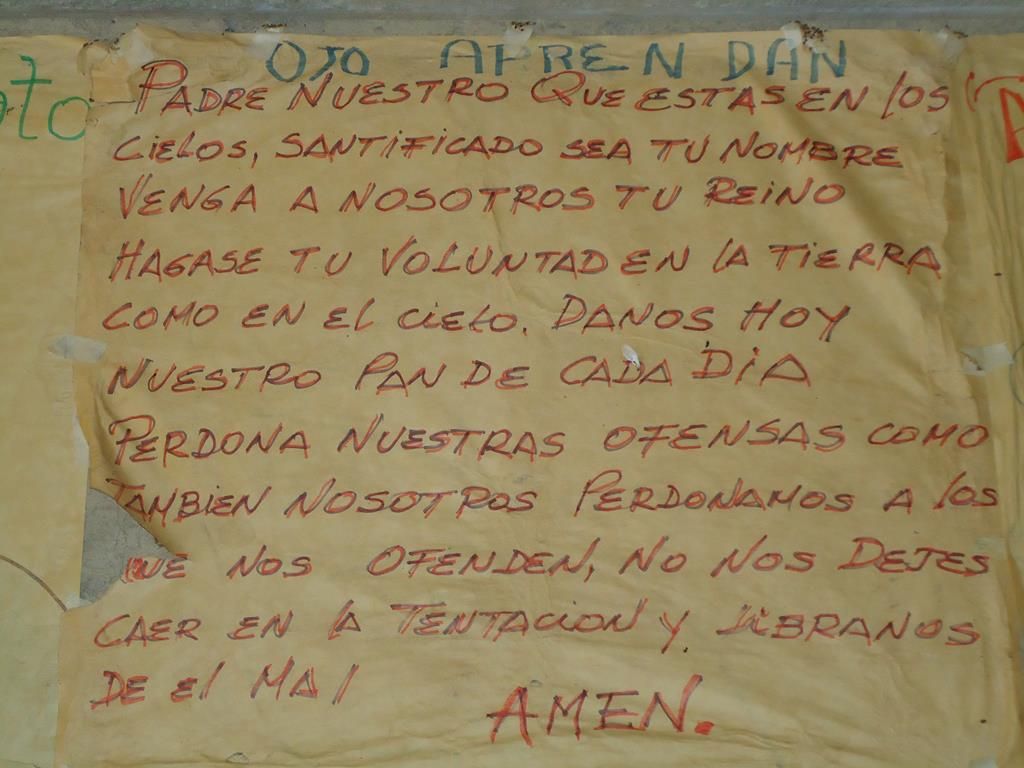 OJO APRENDAN
PADRE NUESTRO QUE ESTAS EN LOS
CIELOS, SANTIFICADO SEA TU NOMBRE
VENGA A NOSOTROS TU REINO
HAGASE TU VOLUNTAD EN LA TIERRA
COMO EN EL CIELO. DANOS HOY
NUESTRO PAN DE CADA DIA
PERDONA NUESTRAS OFENSAS COMO
TAMBIEN NOSOTROS PERDONAMOS A LOS
UE NOS OFENDEN, NO NOS DEJES
CAER EN LA TENTACION Y LIBRANOS
DE EL MAL
AMEN.